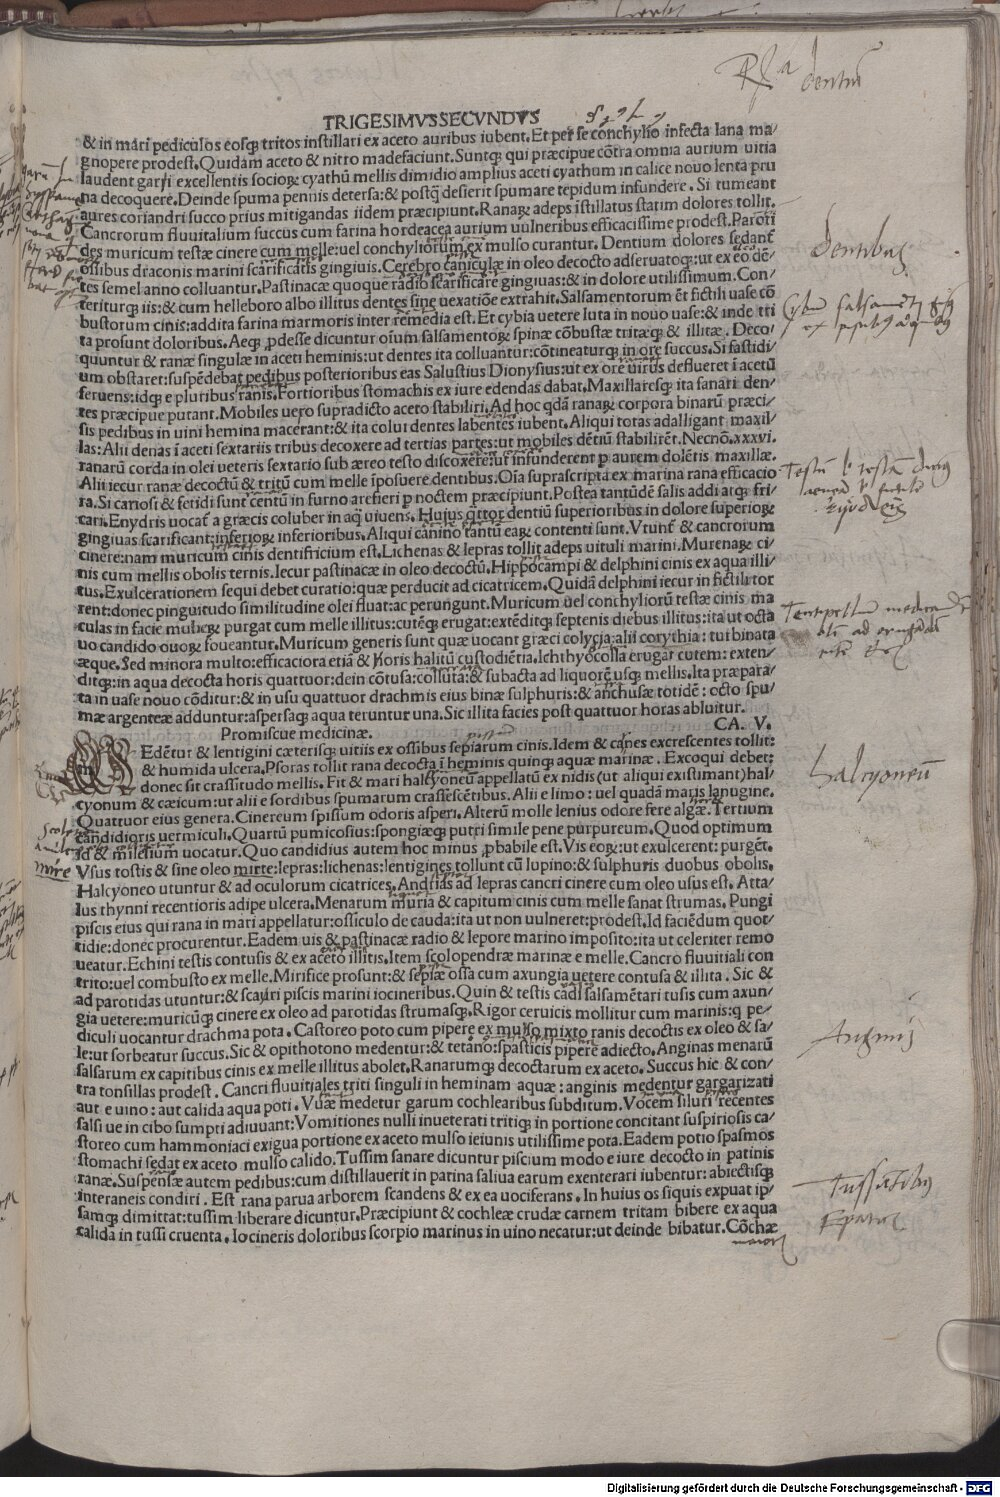 dentiū
TRIGESIMVS SECVNDVS
& in mari pediculos eosq; tritos instillari ex aceto auribus iubent. Et per se conchylio infecta lana ma/
gnopere prodest. Quidam aceto & nitro madefaciunt. Suntq; qui præcipue cōtra omnia aurium uitia
laudent gari excellentis socioꝝ cyathū mellis dimidio amplius aceti cyathum in calice nouo lenta pru
na decoquere. Deinde spuma pennis detersa: & postq̄ desierit spumare tepidum infundere. Si tumeant
aures coriandri succo prius mitigandas iidem præcipiunt. Ranaꝝ adeps īstillatus statim dolores tollit.
Cancrorum fluuitalium succus cum farina hordeacea aurium uulneribus efficacissime prodest. Paroti
des muricum testæ cinere cum melle: uel conchyliorum ex mulso curantur. Dentium dolores sedant̄
ossibus draconis marini scarificatis gingiuis. Cerebro caniculæ in oleo decocto adseruatoq;: ut ex eo dē/
tes semel anno colluantur. Pastinacæ quoque radio scarificare gingiuas: & in dolore utilissimum. Con/
teriturq; iis: & cum helleboro albo illitus dentes sine uexatiōe extrahit. Salsamentorum ēt fictili uase cō
bustorum cinis: addita farina marmoris inter remedia est. Et cybia uetere luta in nouo uase: & inde tri
ta prosunt doloribus. Aeq; p̄desse dicuntur oīum salsamentoꝝ spinæ cōbustæ tritæq; & illitæ. Deco/
quuntur & ranæ singulæ in aceti heminis: ut dentes ita colluantur: cōtineaturq; in ore succus. Si fastidi/
um obstaret: suspēdebat pedibus posterioribus eas Salustius Dionysius: ut ex ore uirus deflueret ī acetū
feruens: idq; e pluribus ranis. Fortioribus stomachis ex iure edendas dabat. Maxillaresq; ita sanari den/
tes præcipue putant. Mobiles uero supradicto aceto stabiliri. Ad hoc q̄dā ranaꝝ corpora binarū præci/
sis pedibus in uini hemina macerant: & ita colui dentes labentes iubent. Aliqui totas adalligant maxil/
las: Alii denas ī aceti sextariis tribus decoxere ad tertias partes: ut mobiles dētiū stabilirēt. Necnō. xxxvi.
ranarū corda in olei ueteris sextario sub æreo testo discoxere: ut infunderent p aurem dolētis maxillæ.
Alii iecur ranæ decoctū & tritū cum melle īposuere dentibus. Oīa suprascripta ex marina rana efficacio
ra. Si cariosi & fetidi sunt centū in furno arefieri p noctem præcipiunt. Postea tantūdē salis addi atq; fri/
cari. Enydris uocat̄ a græcis coluber in aq̄ uiuens. Huius q̄ttor dentiū superioribus in dolore superioꝝ
gingiuas scarificant: inferioꝝ inferioribus. Aliqui canino tantū eaꝝ contenti sunt. Vtunt̄ & cancrorum
cinere: nam muricum cinis dentifricium est. Lichenas & lepras tollit adeps uituli marini. Murenaꝝ ci/
nis cum mellis obolis ternis. Iecur pastinacæ in oleo decoctū. Hippocampi & delphini cinis ex aqua illi/
tus. Exulcerationem sequi debet curatio: quæ perducit ad cicatricem. Quidā delphini iecur in fictili tor
rent: donec pinguitudo similitudine olei fluat: ac perungunt. Muricum uel conchyliorū testæ cinis ma
culas in facie mulieꝝ purgat cum melle illitus: cutēq; erugat: extēditq; septenis diebus illitus: ita ut octa
uo candido ouoꝝ foueantur. Muricum generis sunt quæ uocant græci colycia: alii corythia: tui binata
æque. Sed minora multo: efficaciora etiā & horis halitū custodiētia. Ichthyocolla erugat cutem: exten/
ditq;: in aqua decocta horis quattuor: dein cōtusa: colluta: & subacta ad liquorē usq; mellis. Ita præpara/
ta in uase nouo cōditur: & in usu quattuor drachmis eius binæ sulphuris: & anchusæ totidē: octo spu/
mæ argenteæ adduntur: aspersaq; aqua teruntur una. Sic illita facies post quattuor horas abluitur.
Promiscue medicinæ. CA. V.
Edētur & lentigini cæterisq; uitiis ex ossibus sepiarum cinis. Idem & carnes excrescentes tollit:
& humida ulcera. Psoras tollit rana decocta ī heminis quinq; aquæ marinæ. Excoqui debet:
donec sit crassitudo mellis. Fit & mari halcyoneū appellatū ex nidis (ut aliqui existimant) hal/
cyonum & cæicum: ut alii e sordibus spumarum crassescētibus. Alii e limo: uel quadā maris lanugine.
Quattuor eius genera. Cinereum spissum odoris asperi. Alterū molle lenius odore fere algæ. Tertium
candidioris uermiculi. Quartū pumicosius: spongiæq; putri simile pene purpureum. Quod optimum
id & milesium uocatur. Quo candidius autem hoc minus p̄babile est. Vis eoꝝ: ut exulcerent: purgēt.
Vsus tostis & sine oleo mirte: lepras: lichenas: lentigines tollunt cū lupino: & sulphuris duobus obolis.
Halcyoneo utuntur & ad oculorum cicatrices. Andrias ad lepras cancri cinere cum oleo usus est. Atta/
lus thynni recentioris adipe ulcera. Menarum muria & capitum cinis cum melle sanat strumas. Pungi
piscis eius qui rana in mari appellatur: ossiculo de cauda: ita ut non uulneret: prodest. Id faciēdum quot/
tidie: donec procurentur. Eadem uis & pastinacæ radio & lepore marino imposito: ita ut celeriter remo
ueatur. Echini testis contusis & ex aceto illitis. Item scolopendræ marinæ e melle. Cancro fluuitiali con
trito: uel combusto ex melle. Mirifice prosunt: & sepiæ ossa cum axungia uetere contusa & illita. Sic &
ad parotidas utuntur: & scauri piscis marini iocineribus. Quin & testis cādi salsamētari tusis cum axun/
gia uetere: muricūq; cinere ex oleo ad parotidas strumasq;. Rigor ceruicis mollitur cum marinis: q pe/
diculi uocantur drachma pota. Castoreo poto cum pipere ex mulso mixto ranis decoctis ex oleo & sa/
le: ut sorbeatur succus. Sic & opithotono medentur: & tetano: spasticis pipere adiecto. Anginas menarū
salsarum ex capitibus cinis ex melle illitus abolet. Ranarumq; decoctarum ex aceto. Succus hic & con/
tra tonsillas prodest. Cancri fluuitiales triti singuli in heminam aquæ: anginis medentur gargarizati
aut e uino: aut calida aqua poti. Vuæ medetur garum cochlearibus subditum. Vocem siluri recentes
salsi ue in cibo sumpti adiuuant: Vomitiones nulli inueterati tritiq; in portione concitant suspiriosis ca/
storeo cum hammoniaci exigua portione ex aceto mulso ieiunis utilissime pota. Eadem potio spasmos
stomachi sedat ex aceto mulso calido. Tussim sanare dicuntur piscium modo e iure decocto in patinis
ranæ. Suspensæ autem pedibus: cum distillauerit in patina saliua earum exenterari iubentur: abiectisq;
interaneis condiri. Est rana parua arborem scandens & ex ea uociferans. In huius os siquis expuat ip/
samq; dimittat: tussim liberare dicuntur. Præcipiunt & cochleæ crudæ carnem tritam bibere ex aqua
calida in tussi cruenta. Iocineris doloribus scorpio marinus in uino necatur: ut deinde bibatur. Cōchæ
Dentibus
halcyoneū
mire
Anginis
Tussientibus
Epatis
Digitalisierung gefördert durch die Deutsche Forschungsgemeinschaft - DFG